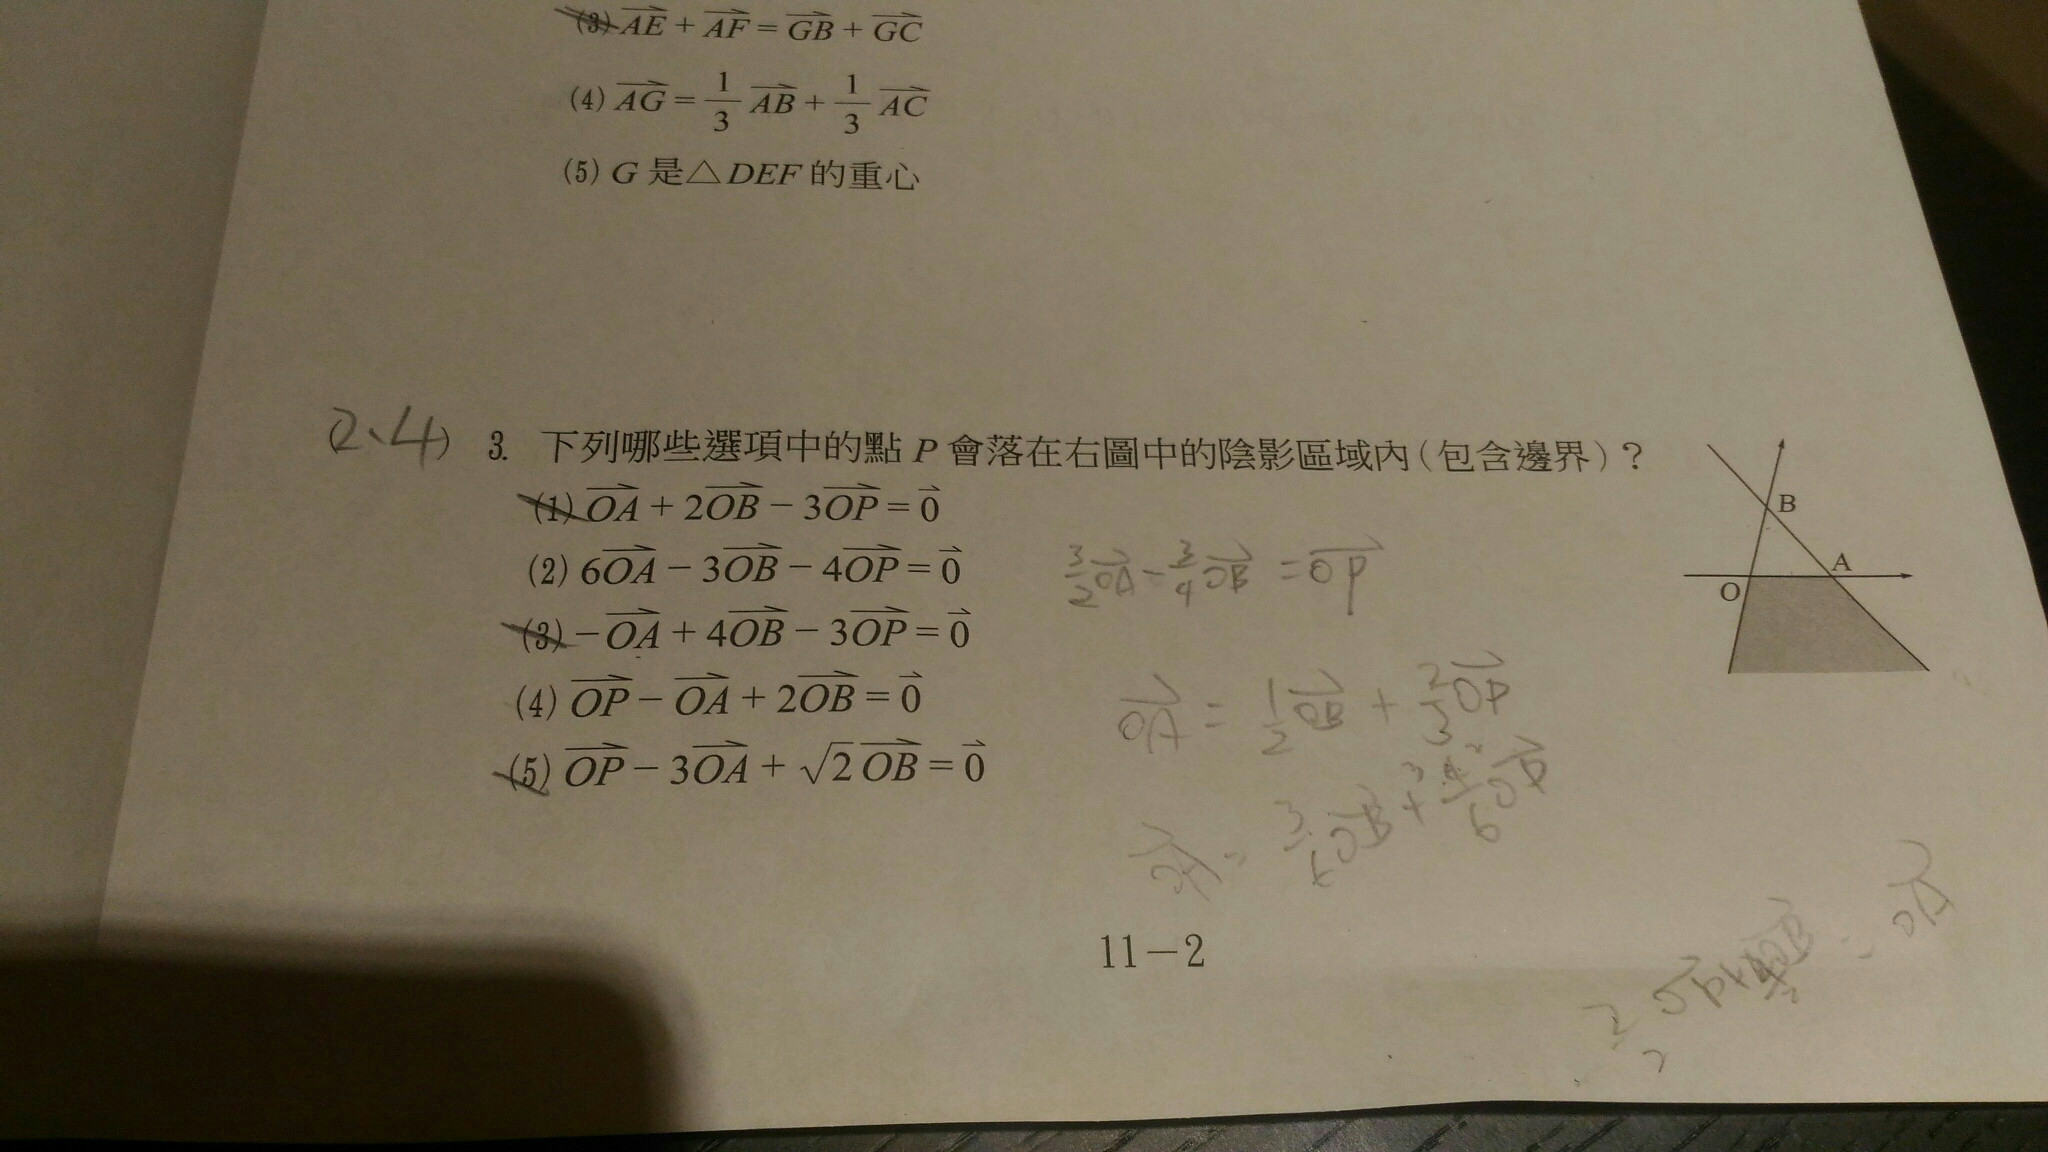 (3) AE + AF = GB + GC
(4) AG = 1/3 AB + 1/3 AC
(5) G 是△DEF 的重心
2、4) 3. 下列哪些選項中的點 P 會落在右圖中的陰影區域內(包含邊界)?
(1) OA + 2OB − 3OP = 0
(2) 6OA − 3OB − 4OP = 0
3/2 OA − 3/4 OB = OP
(3) −OA + 4OB − 3OP = 0
(4) OP − OA + 2OB = 0
OA = 1/2 OB + 2/3 OP
(5) OP − 3OA + √2 OB = 0
B
A
O
11−2